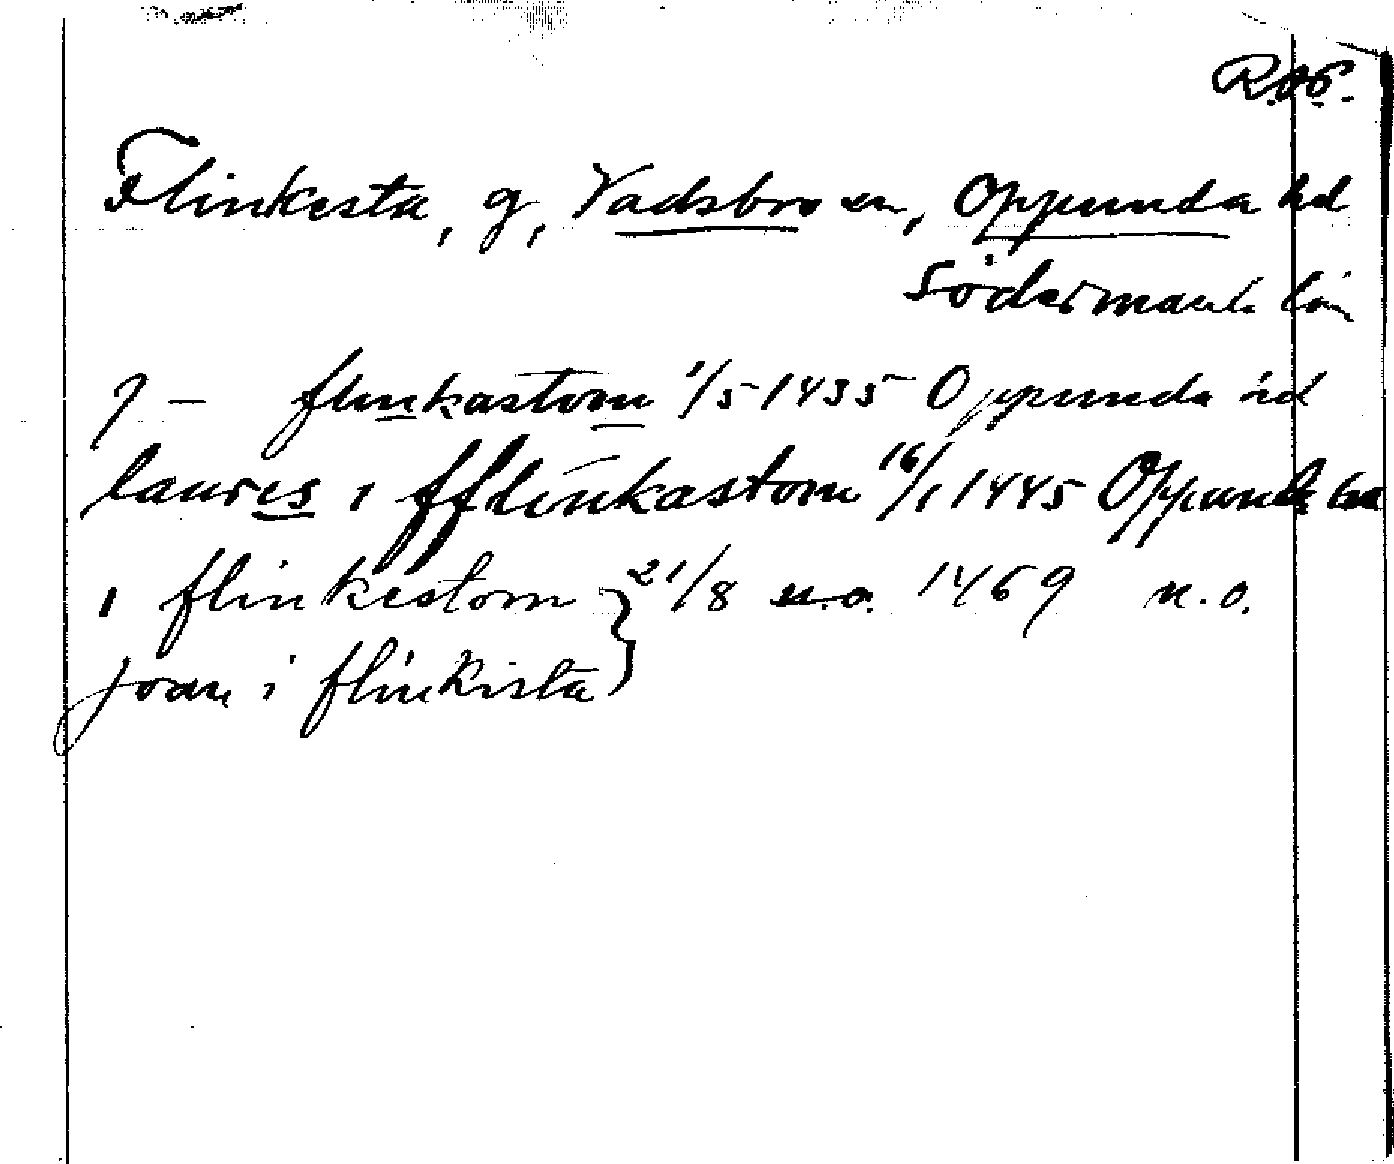 R.06.
Flinkesta, g, Vadsbro sn, Oppunda hd
Södermanl. län
J – flinkastom 1/5 1435 Oppunda hd
laures i fflinkastom 16/1 1445 Oppunda
i flinkestom } 21/8 1469 n.o.
joan i flinkista